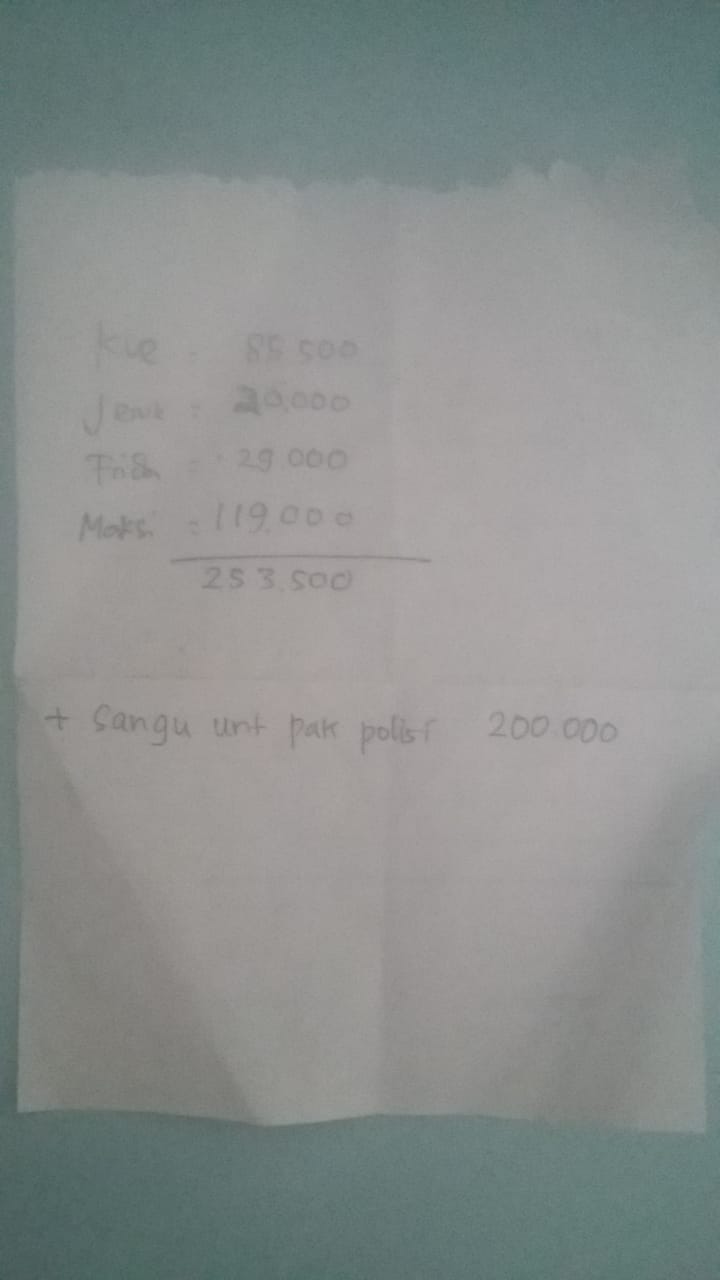 Kue = 85.500
Jeruk = 20.000
= 29.000
Maksi = 119.000
253.500
+ Sangu unt pak polisi 200.000